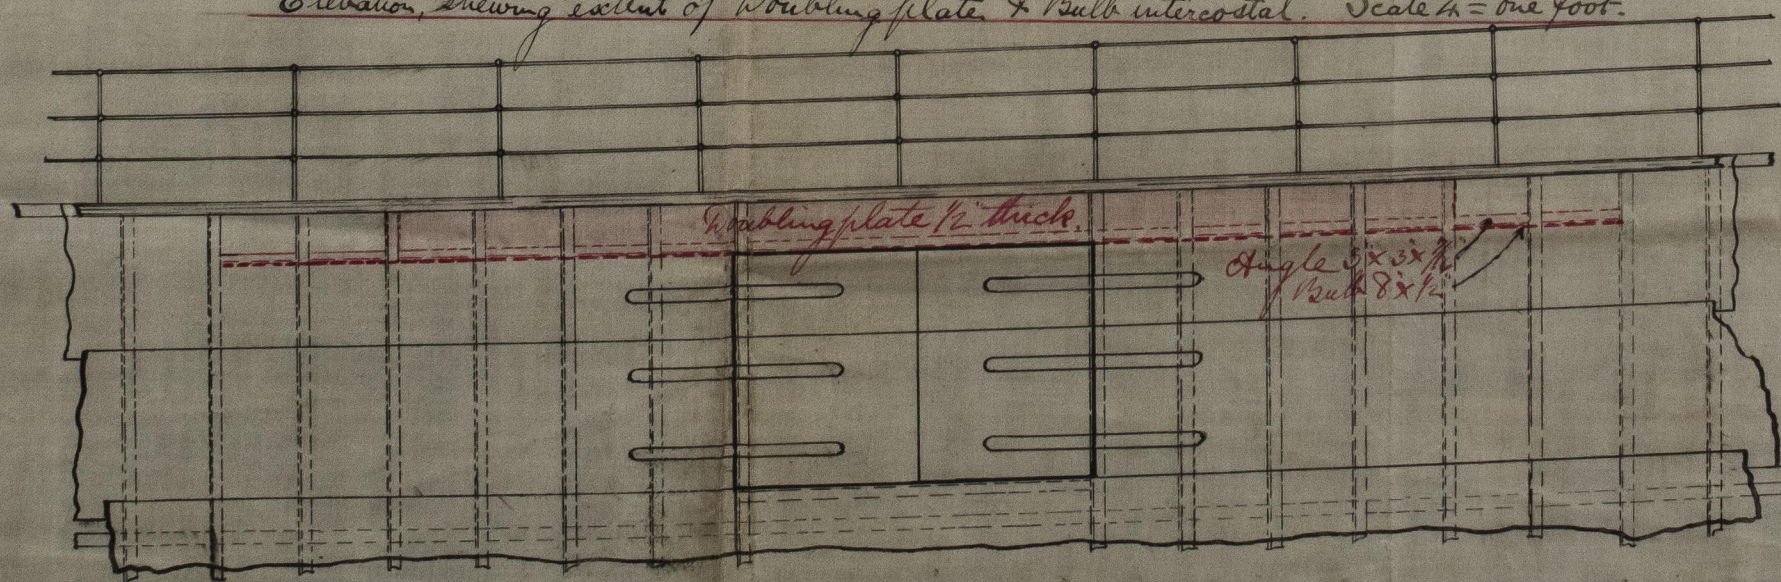 Elevation, shewing extent of Doubling plate & Bulb intercostal. Scale ¼ = one foot.
Doubling plate ½ thick.
Angle 3 x 3 x ½
Bulb 8 x ½